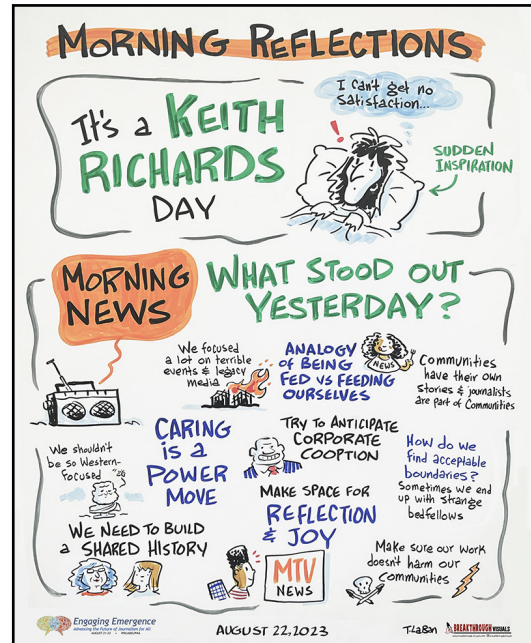 MORNING REFLECTIONS
I can't get no
satisfaction...
It's a KEITH
RICHARDS
DAY
SUDDEN
INSPIRATION
MORNING
NEWS
WHAT STOOD OUT
YESTERDAY?
We focused
a lot on terrible
events & legacy
media
ANALOGY
of BEING
FED vs FEEDING
OURSELVES
NEWS
Communities
have their own
stories & journalists
are part of Communities
We shouldn't
be so Western-
focused
CARING
is a
POWER
MOVE
TRY TO ANTICIPATE
CORPORATE
COOPTION
How do we
find acceptable
boundaries?
Sometimes we end
up with strange
bedfellows
MAKE SPACE FOR
REFLECTION
& JOY
WE NEED TO BUILD
a SHARED HISTORY
MTV
NEWS
Make sure our work
doesn't harm our
communities
Engaging Emergence
Advancing the Future of Journalism for All
AUGUST 21-23 • PHILADELPHIA
AUGUST 22, 2023
T. LaBan
BREAKTHROUGH VISUALS